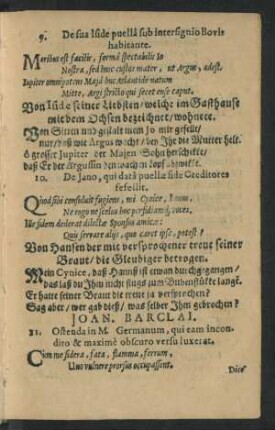 9. De sua Iside puellâ sub intersignio Bovis
habitante.
Moribus est facilis, formâ spectabilis Io
Nostra, sed huic custos mater, ut Argus, adest.
Iupiter omnipotens Majâ huc Atlantide natum
Mitte, Argi stricto qui secet ense caput.
Von Iside seiner Liebsten/ welche im Gasthause
mit dem Ochsen bezeichnet/ wohnete.
Von Sitten und gestalt mein Jo mir gefellt/
nur/ daß wie Argus wacht/ den Ihr die Mutter helt.
ô grosser Jupiter der Majen Sohn herschicke/
daß Er der Argussin den
10. De Jano, qui datâ puellæ fide Creditores
fefellit.
Quòd sibi consuluit fugiens, mi Cynice,
Ne ergo ne scelus hoc perfidiam voces.
Ille fidem dederat dilectæ Sponsus amicæ:
Quis servare alijs, quo caret ipse, potest?
Von Hansen der mit versprochener treue seiner
Braut/ die Gleubiger betrogen.
Mein Cynice, daß Hannß ist etwan durchgegangen/
das laß du Jhm nicht flugs zum Bubenstücke langē.
Er hatte seiner Braut die treue ja versprochen?
Sag aber/ wer gab dieß/ was selber Jhm gebrochen?
JOAN. BARCLAI.
11. Ostenda in M. Germanum, qui eam incon-
dito & maximè obscuro versu luxerat.
Cùm me sidera, fata, flamma, ferrum,
Uno vulnere prorsus occupassent.
Dice